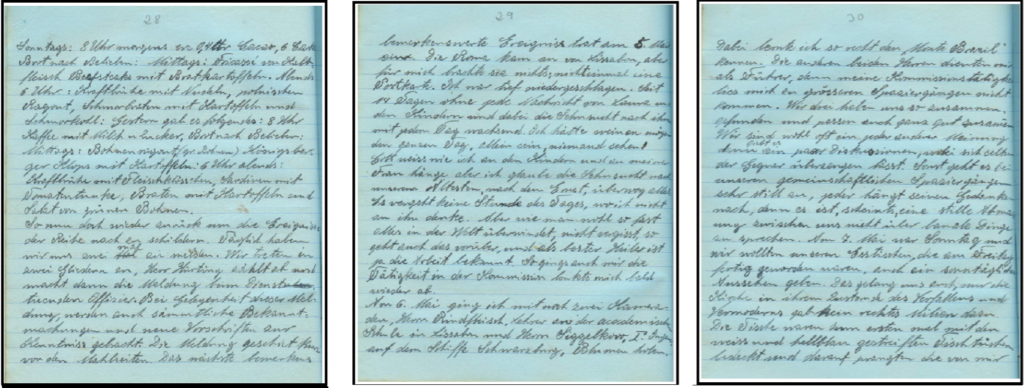 28
Sonntags: 8 Uhr morgens
Brot nach Belieben: Mittags:
fleisch Beefsteaks mit Bratkartoffeln. Abends
6 Uhr: Kraftbrühe mit Nudeln, polnischen
Ragout, Schmorbraten mit Kartoffeln und
Schmorkohl: Gestern gab es folgendes: 8 Uhr
Kaffe mit Milch u Zucker, Brot nach Belieben:
Mittags: Königsber-
ger Klops mit Kartoffeln: 6 Uhr abends:
Kraftbrühe mit Fleischklösschen, Sardinen mit
Tomatentunke, Braten mit Kartoffeln und
Salat von grünen Bohnen.
So nun doch wieder zurück um die Ereignisse
der Reihe nach zu schildern. Täglich haben
wir uns zwei mal zu melden. Wir treten in
zwei Gliedern an, Herr Harting zählt ab und
macht dann die Meldung zum
tuenden Offizier. Bei Gelegenheit dieser Mel-
dung, werden auch sämmtliche Bekannt-
machungen und neue Vorschriften zur
Kenntniss gebracht. Die Meldung geschieht
vor den Mahlzeiten. Das nächste bemerkens
29
bemerkenswerte Ereigniss trat am 5. Mai
ein. Die Roma kam an von Lissabon, aber
für mich brachte sie nichts, nichteinmal eine
Postkarte. Ich war tief niedergeschlagen. Seit
14 Tagen ohne jede Nachricht von Laura und
den Kindern und dabei die Sehnsucht nach ihnen
mit jedem Tag wachsend. Ich hätte weinen mögen
den ganzen Tag, allein sein, niemand sehen!
Gott weiss wie ich an den Kindern und an meiner
Frau hänge aber ich glaube die Sehnsucht nach
unserm Ältesten, nach dem Ernst, überwog alles.
Es vergeht keine Stunde des Tages, wo ich nicht
an ihn denke. Aber wie man wohl so fast
alles in der Welt überwindet, nicht vergisst, so
geht auch das vorüber, und als bester Heiler ist
ja die Arbeit bekannt. So ging auch mir die
Tätigkeit in der Kommission
wieder ab.
Am 6. Mai ging ich mit noch zwei Kamera-
den, Herrn Rindfleisch, Lehrer an der
Schule in Lissabon und Herrn Siggelkow, I. Inge
auf dem Schiffe Schwarzburg,
30
Dabei lernte ich so recht den „Monte Brazil"
kennen. Die anderen beiden Herren dienten mir
als Führer, denn meine Kommissionstätigkeit
liess mich zu grösseren Spaziergängen nicht
kommen. Wir drei haben uns so zusammen
gefunden und passen auch ganz gut zusammen.
Wir sind wohl oft ein jeder anderer Meinung
dann gibt es ein paar Diskussionen, sich selten
der Gegner überzeugen lässt. Sonst geht es bei
unseren gemeinschaftlichen Spaziergängen
sehr still zu, jeder hängt seinen Gedanken
nach, denn es ist, scheints, eine stille Abma
zwischen uns nicht über banale Dinge
zu sprechen. Am 7. Mai war Sonntag und
wir wollten unseren Esstischen, die am
fertig geworden waren, auch ein sonntägliches
Aussehen geben. Das gelang uns auch, nur die
in ihrem Zustande des Verfallens und
Vermoderns gab kein rechtes dazu.
Die Tische waren zum ersten mal mit den
weiss und hellblau gestreiften Tischtüchern
bedeckt und darauf prangten die von mir